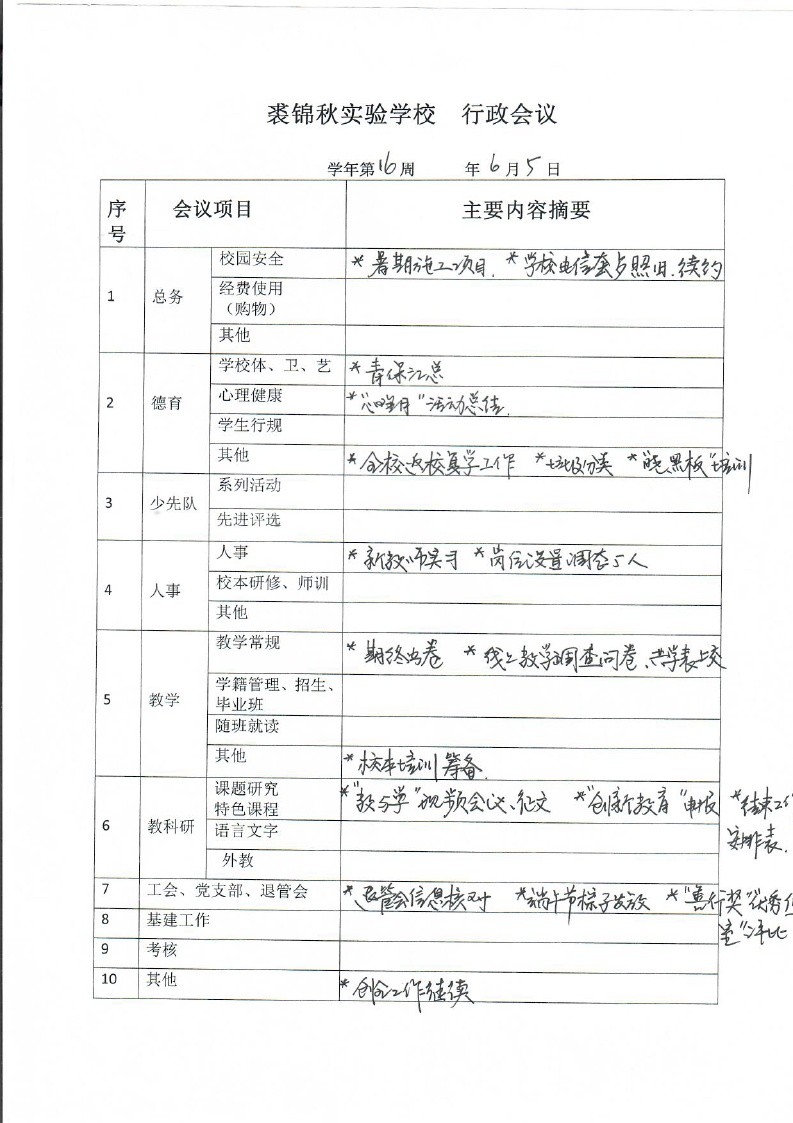 裘锦秋实验学校 行政会议
学年第16周 年6月5日
序号 会议项目 主要内容摘要
1 总务 校园安全 *暑期施工项目. *学校电信套餐照旧.续约
经费使用
（购物）
其他
2 德育 学校体、卫、艺 *青保汇总
心理健康 *"心理月"活动总结.
学生行规
其他 *全校返校复学工作 *垃圾分类 *"晓黑板"培训
3 少先队 系列活动
先进评选
4 人事 人事 *新教师实习 *岗位设置调整5人
校本研修、师训
其他
5 教学 教学常规 *期终出卷 *线上教学调查问卷、上交
学籍管理、招生、
毕业班
随班就读
其他 *校本培训筹备.
6 教科研 课题研究 *"教与学"视频会议、征文 *"创新教育"申报 *结束工作
特色课程 安排表.
语言文字
外教
7 工会、党支部、退管会 *退管会信息核对 *端午节粽子发放 *优秀
8 基建工作 室"评比
9 考核
10 其他 *工作继续